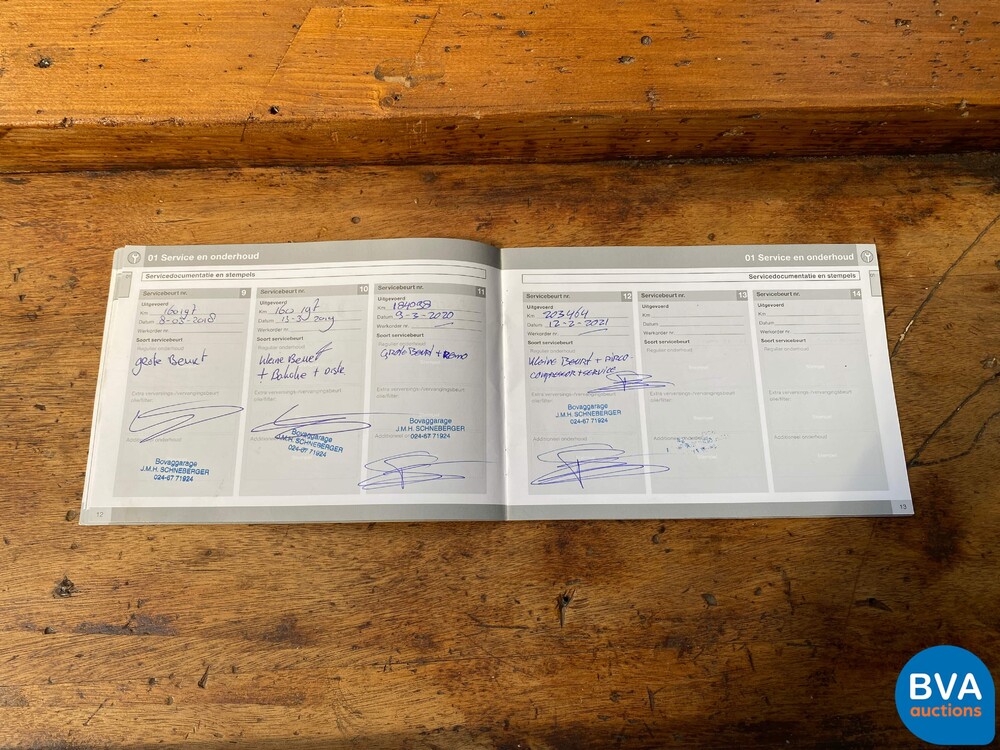 01 Service en onderhoud
Servicedocumentatie en stempels
Servicebeurt nr. 9
Uitgevoerd
Km
Datum 8-05-2018
Werkorder nr.
Soort servicebeurt
Regulier onderhoud
grote Beurt
Extra verversings-/vervangingsbeurt
olie/filter:
Additioneel onderhoud:
Bovaggarage
J.M.H. SCHNEBERGER
024-67 71924
12
Servicebeurt nr. 10
Uitgevoerd
Km
Datum 13-3-2019
Werkorder nr.
Soort servicebeurt
Regulier onderhoud
kleine Beurt
+
Extra verversings-/vervangingsbeurt
olie/filter:
Additioneel onderhoud:
Bovaggarage
J.M.H. SCHNEBERGER
024-67 71924
Servicebeurt nr. 11
Uitgevoerd
Km
Datum 9-3-2020
Werkorder nr.
Soort servicebeurt
Regulier onderhoud
Grote Beurt +
Extra verversings-/vervangingsbeurt
olie/filter:
Bovaggarage
J.M.H. SCHNEBERGER
024-67 71924
01 Service en onderhoud
Servicedocumentatie en stempels
Servicebeurt nr. 12
Uitgevoerd
Km 203464
Datum 12-2-2021
Werkorder nr.
Soort servicebeurt
Regulier onderhoud
kleine Beurt + Airco-
compressor + service
Extra verversings-/vervangingsbeurt
olie/filter:
Bovaggarage
J.M.H. SCHNEBERGER
024-67 71924
Additioneel onderhoud:
Servicebeurt nr. 13
Uitgevoerd
Km
Datum
Werkorder nr.
Soort servicebeurt
Regulier onderhoud
Stempel
Extra verversings-/vervangingsbeurt
olie/filter:
Stempel
Additioneel onderhoud:
Stempel
Servicebeurt nr. 14
Uitgevoerd
Km
Datum
Werkorder nr.
Soort servicebeurt
Regulier onderhoud
Stempel
Extra verversings-/vervangingsbeurt
olie/filter:
Stempel
Additioneel onderhoud:
Stempel
13
BVA
auctions